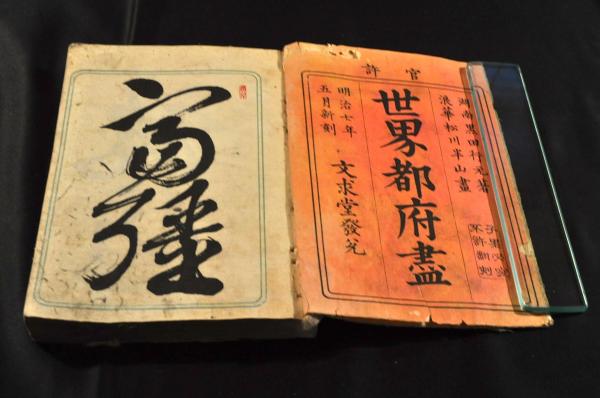 官許
湖南黒田行元著
浪華松川半山畫
世界都府盡
明治七年
五月新刻
文求堂發兌
不許翻刻
富彊